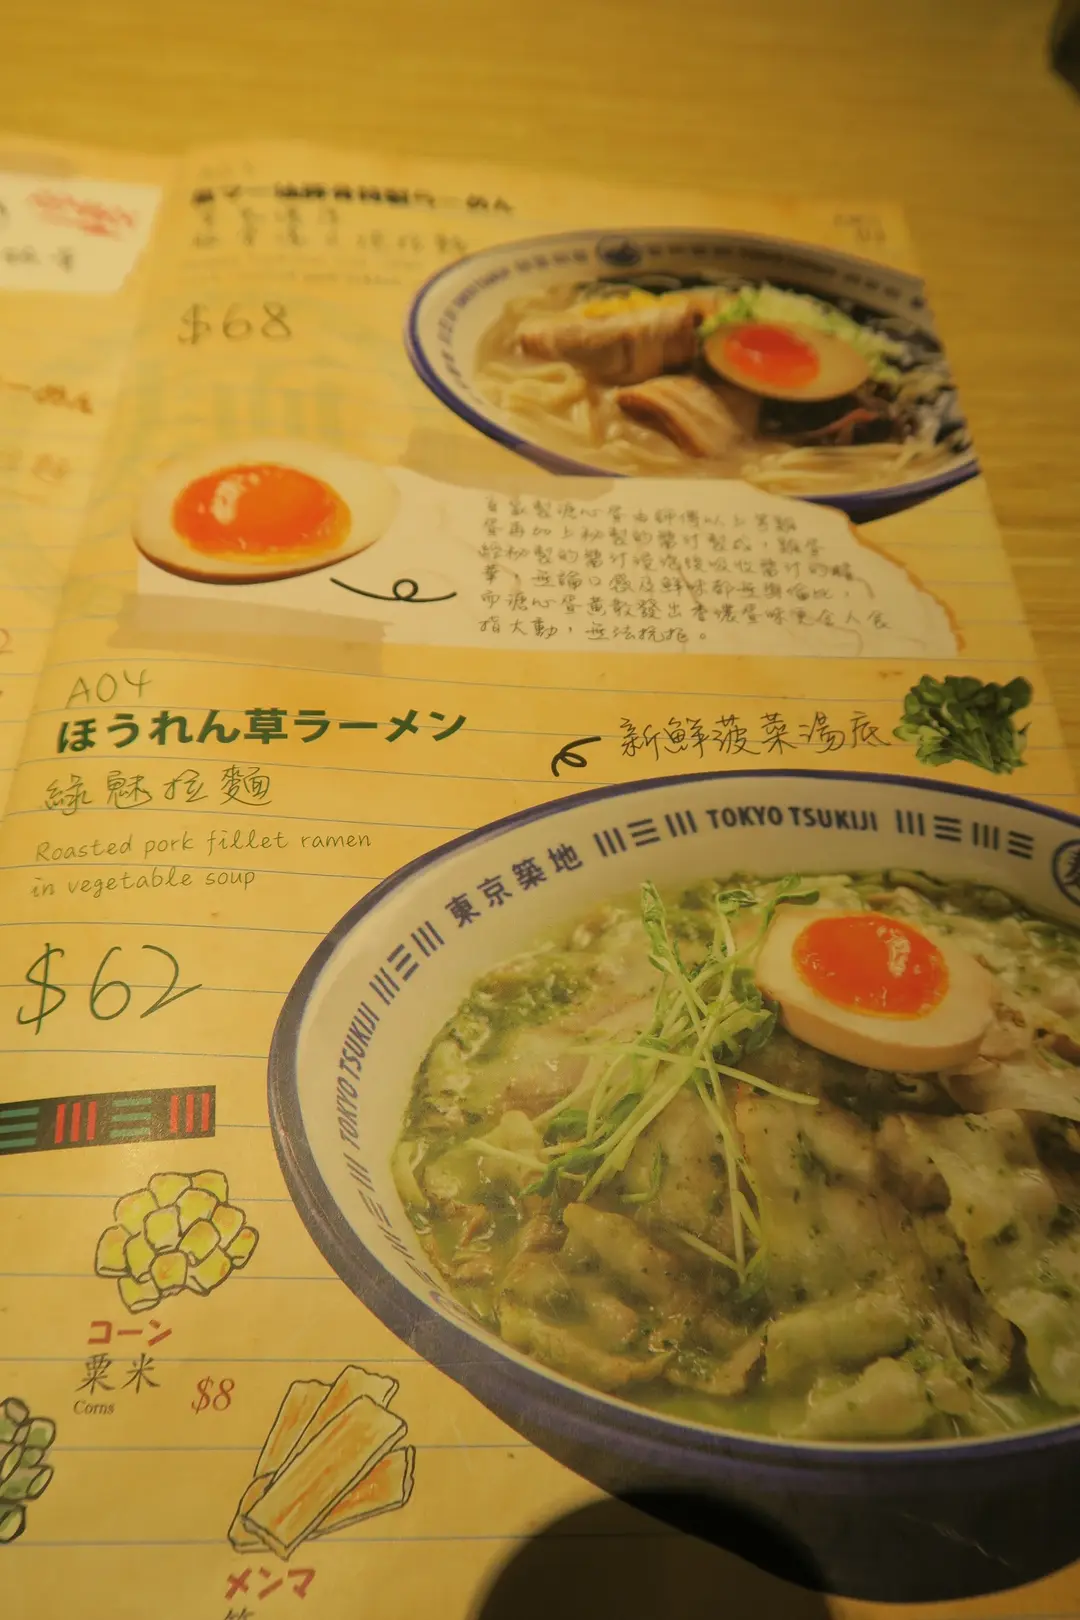 $68
自家製溏心蛋由師傅以上等雞
蛋再加上秘製的醬汁製成，雞蛋
經秘製的醬汁浸泡後吸收醬汁的精
華，無論口感及鮮味都無與倫比，
而溏心蛋黃散發出香濃蛋味更令人食
指大動，無法抗拒。
A04
ほうれん草ラーメン
新鮮菠菜湯底
綠魅拉麵
Roasted pork fillet ramen
in vegetable soup
$62
東京築地 TOKYO TSUKIJI
TOKYO TSUKIJI
コーン
粟米
Corns
$8
メンマ